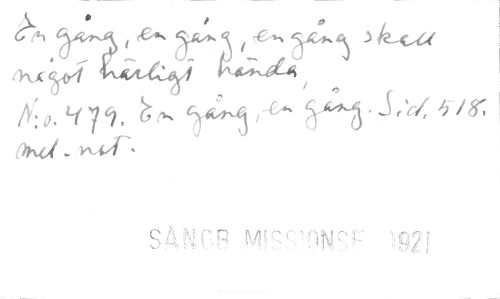 En gång, en gång, en gång skall
något härligt hända,
N:o. 479. En gång, en gång. Sid. 518.
mel. not.
SÅNGB MISSIONSF 1921